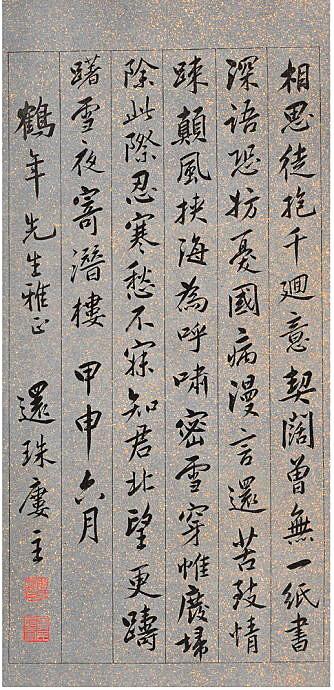 相思徒抱千迴意契闊曾無一紙書
深語恐妨憂國病漫言還苦致情
踈顛風挾海為呼嘯密雪穿帷廢埽
除此際忍寒愁不寐知君北望更躊
躇雪夜寄潛樓 甲申六月
鶴年先生雅正 還珠廔主